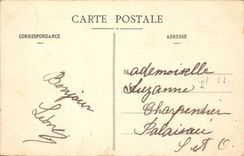 CARTE POSTALE
CORRESPONDANCE
ADRESSE
Bonjour
Mademoiselle
Suzanne
Charpentier
Palaiseau
S et O.